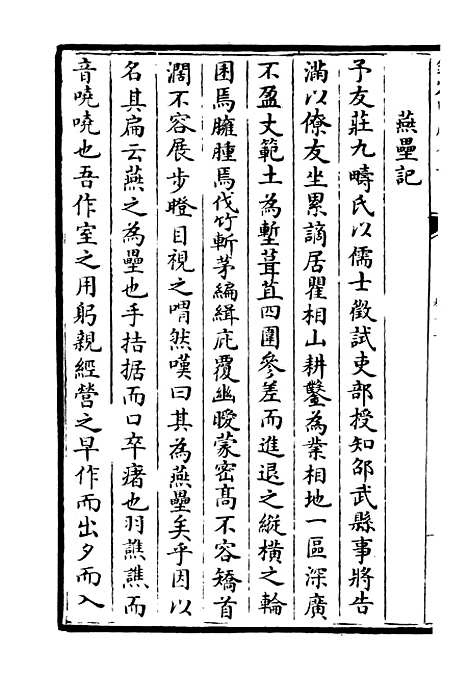 燕壘記
予友莊九疇氏以儒士徵試吏部授知邵武縣事將告
滿以僚友坐累謫居瞿相山耕鑿為業相地一區深廣
不盈丈範土為塹葺苴四圍參差而進退之縱橫之輪
囷焉臃腫焉伐竹斬茅編緝庇覆幽曖蒙密髙不容矯首
濶不容展步瞪目視之喟然嘆曰其為燕壘矣乎因以
名其扁云燕之為壘也手拮据而口卒瘏也羽譙譙而
音嘵嘵也吾作室之用躬親經營之早作而出夕而入